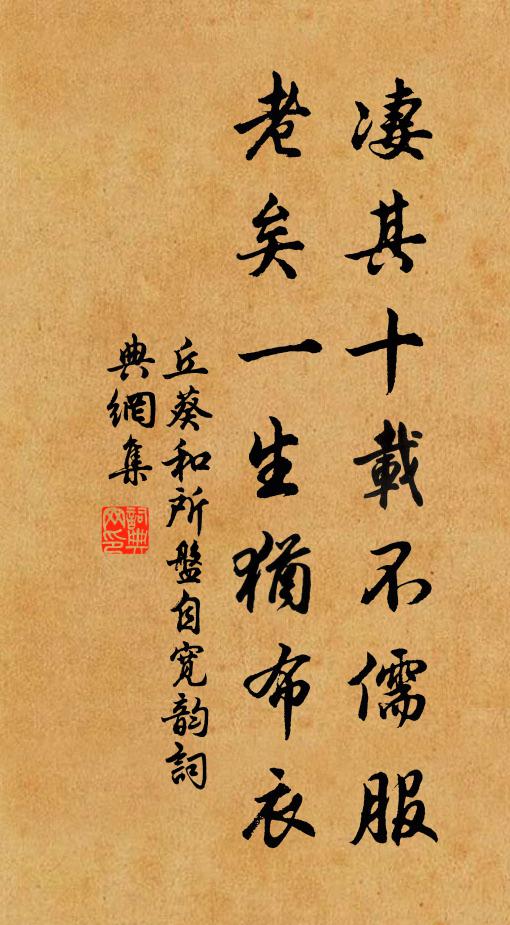 凄其十載不儒服
老矣一生猶布衣
丘葵和所盤自寬韵詞
典網集
詞典
網印